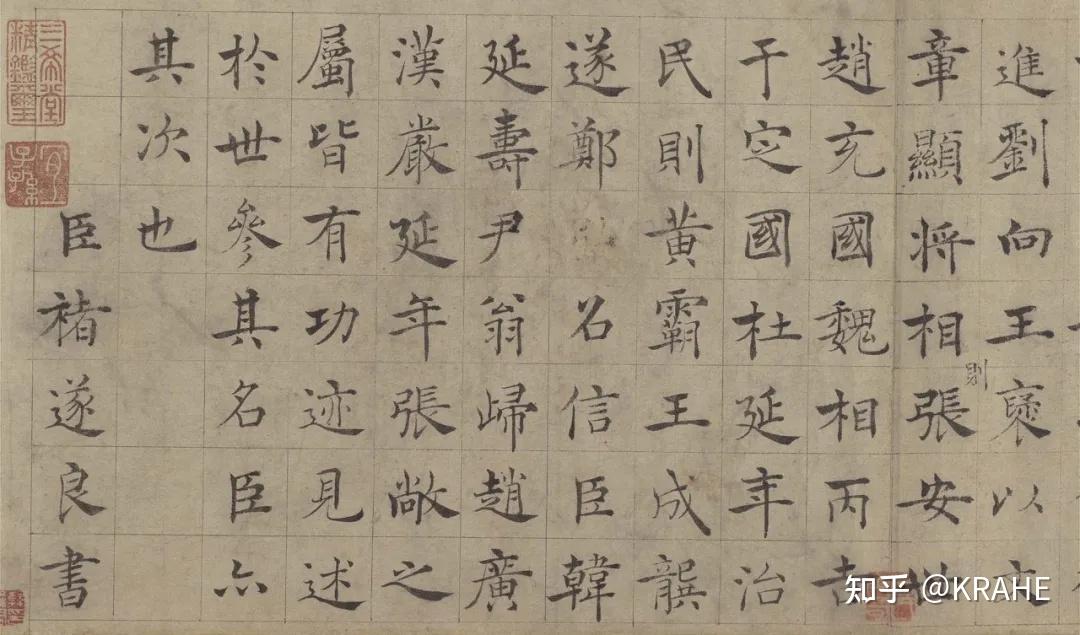 進劉向王褒以文
章顯將相則張安世
趙充國魏相丙吉
于定國杜延年治
民則黃霸王成龔
遂鄭召信臣韓
延壽尹翁歸趙廣
漢嚴延年張敞之
屬皆有功迹見述
於世參其名臣亦
其次也
臣褚遂良書
三希堂精鑑璽
宜子孫
知乎 @KRAHE